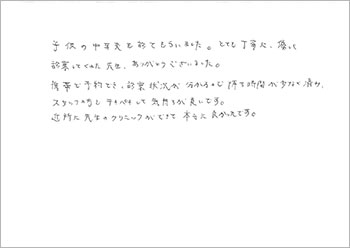 子供の中耳炎を診てもらいました。とても丁寧に、優しく
診察してくれた先生、ありがとうございました。
携帯で予約でき、診察状況が分かるので待ち時間が少なく済み、
スタッフの方もテキパキしてて気持ちが良いです。
近所に先生のクリニックができて本当に良かったです。